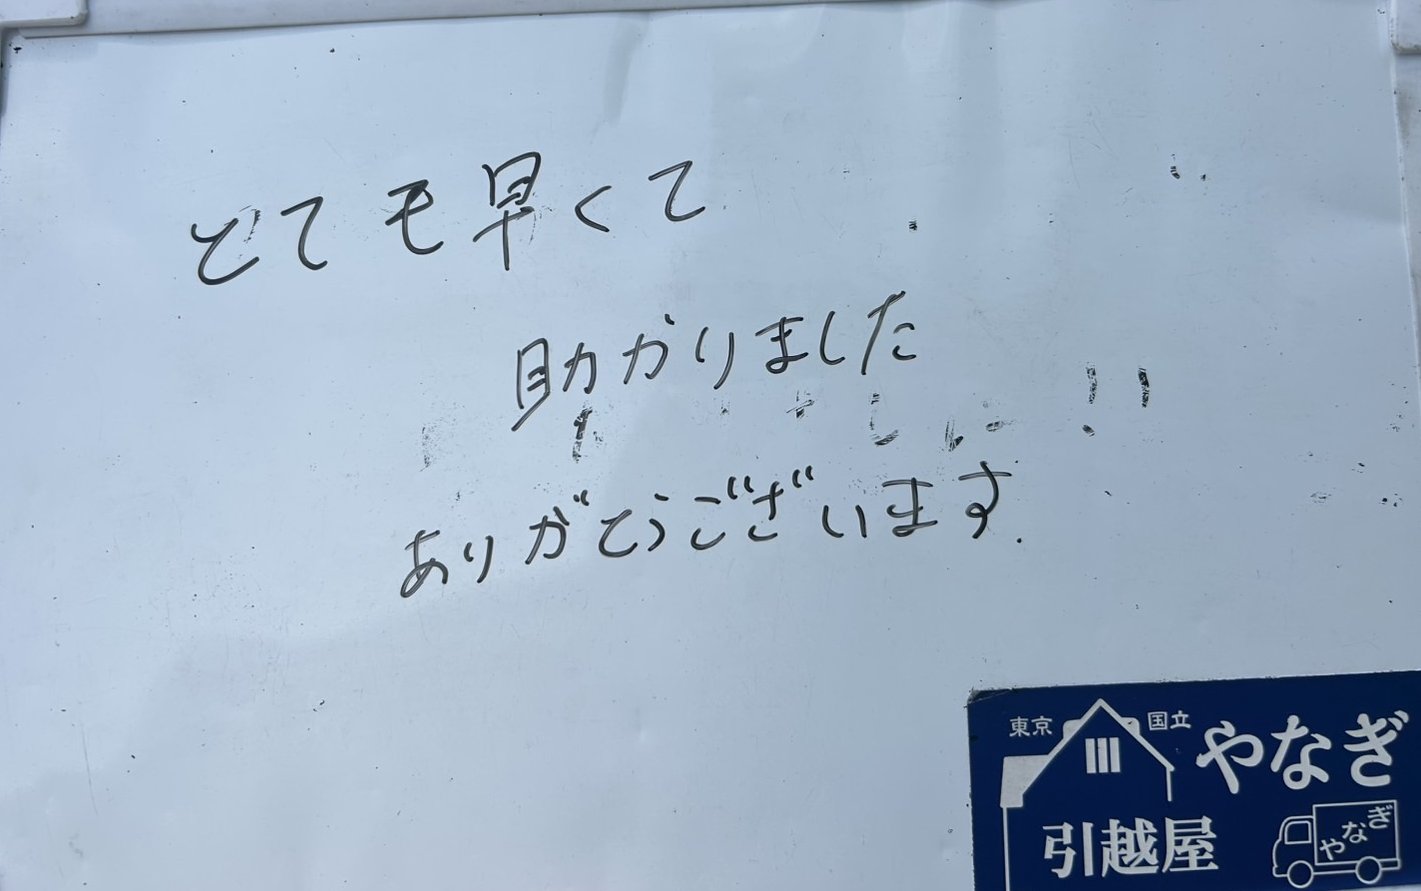 とても早くて
助かりました
!!
ありがとうございます.
東京 国立 やなぎ
引越屋
やなぎ